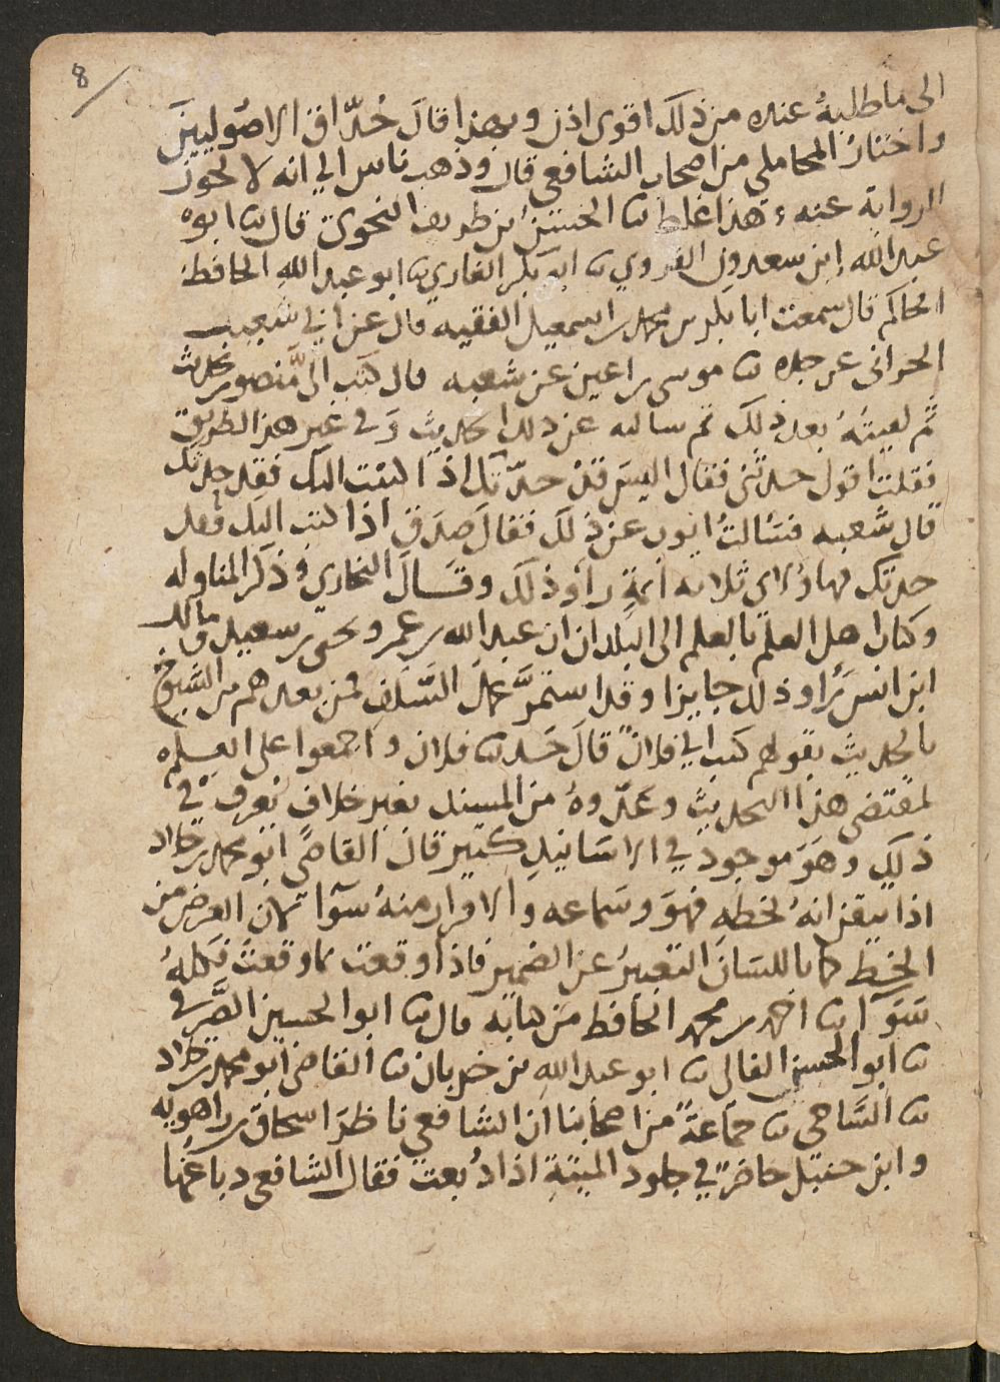 8
الى ما طلبه عنده من ذلك اقوى اذن وبهذا قال حُذّاق الاصوليين
واختاره المحاملي من اصحاب الشافعي قال وذهب ناس الى انه لا تجوز
الرواية عنه وهذا غلط نا الحسين بن طريف النحوى قال نا ابوه
عبد الله ابن سعدون القروي نا ابو بكر الغازي نا ابو عبد الله الحافظ
الحاكم قال سمعت ابا بكر بن محمد بن اسمعيل الفقيه قال عن ابي شعيب
الحراني عن جده نا موسى بن اعين عن شعبه قال كتب الىَّ منصور بحديث
ثم لقيتُهُ بعد ذلك ثم سالته عن ذلك الحديث وَفي غير هذا الطريق
فقلت اقول حدثني فقال اليسَ قدْ حدّثتك اذا كتبت اليك فقد حدثتك
قال شعبه فسَالتُ ايوب عن ذلك فقالَ صدق اذا كتب اليك فقد
حدثك فهاؤلاى ثلاثه ائمةٍ راَوْ ذلك وقَسَالَ البخاري وذكر المناوله
وكتاب اهل العلم بالعلم الى البلدان ان عبد الله بن عمر ويحيى بن سعيد ومالك
ابن انس رَاوا ذلك جايزا وقد استمرَّ عمل السّلف فمن بعدهم من الشيوخ
بالحديث بقولهم كتب الي فلانٌ قالَ حَدثنا فلان واجمعوا على العمل
لمقتضى هذا التحديث وعدّوهُ من المسند بغير خلاف يُعرف في
ذلك وهَوَ موجود في الاسَانيد كثير قال القاضي ابو محمد بن خلاد
اذا تيقن انهُ بخطه فهوَ وسَماعه والاقرار منهُ سَوا لان الغرض من
الخط كما باللسَان التعبيرُ عن الضمير فاذا وقعت بما وقعتْ فكلهُ
سَوَآ نا احمد بن محمد الحافظ من كتابه قال نا ابو الحسين الصَّيرفي
نا ابو الحسن الفالي نا ابو عبد الله بن خربان نا القاضي ابو محمد بن خلاد
نا السَّاجي نا جَماعَةٌ من اصحابنا ان الشافعي ناظرَ اسحاق بن راهويه
وابن حنبل حاضرٌ في جلود الميتةِ اذا دُبغت فقال الشافعي دباغُها